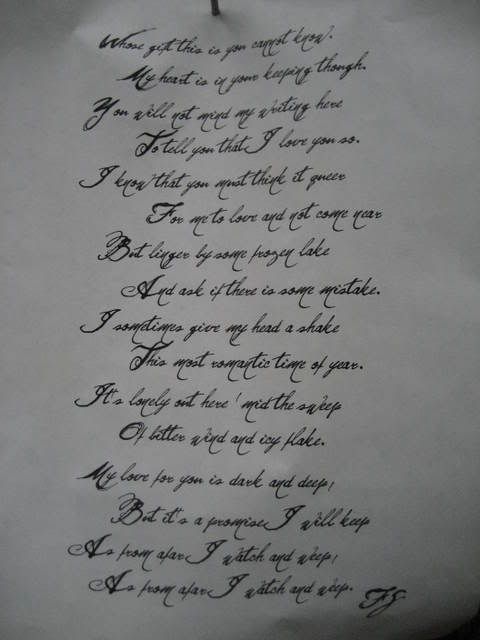 Whose gift this is you cannot know.
My heart is in your keeping though.
You will not mind my writing here
To tell you that I love you so.
I know that you must think it queer
For me to love and not come near
But linger by some frozen lake
And ask if there is some mistake.
I sometimes give my head a shake
This most romantic time of year.
It's lonely out here 'mid the sweep
Of bitter wind and icy flake.
My love for you is dark and deep,
But it's a promise I will keep
As from afar I watch and weep,
As from afar I watch and weep.